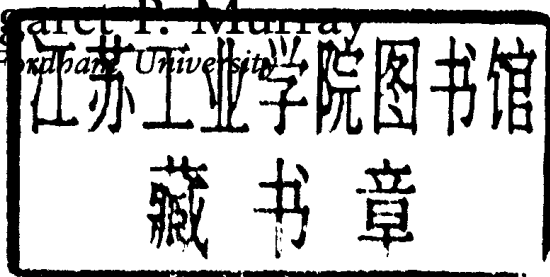 garet P. Murray
Fordham University
江苏工业学院图书馆
藏书章